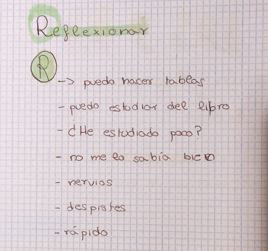 Reflexionar
R
-> puedo hacer tablas
- puedo estudiar del libro
- ¿He estudiado poco?
- no me lo sabía bien
- nervios
- despistes
- rápido